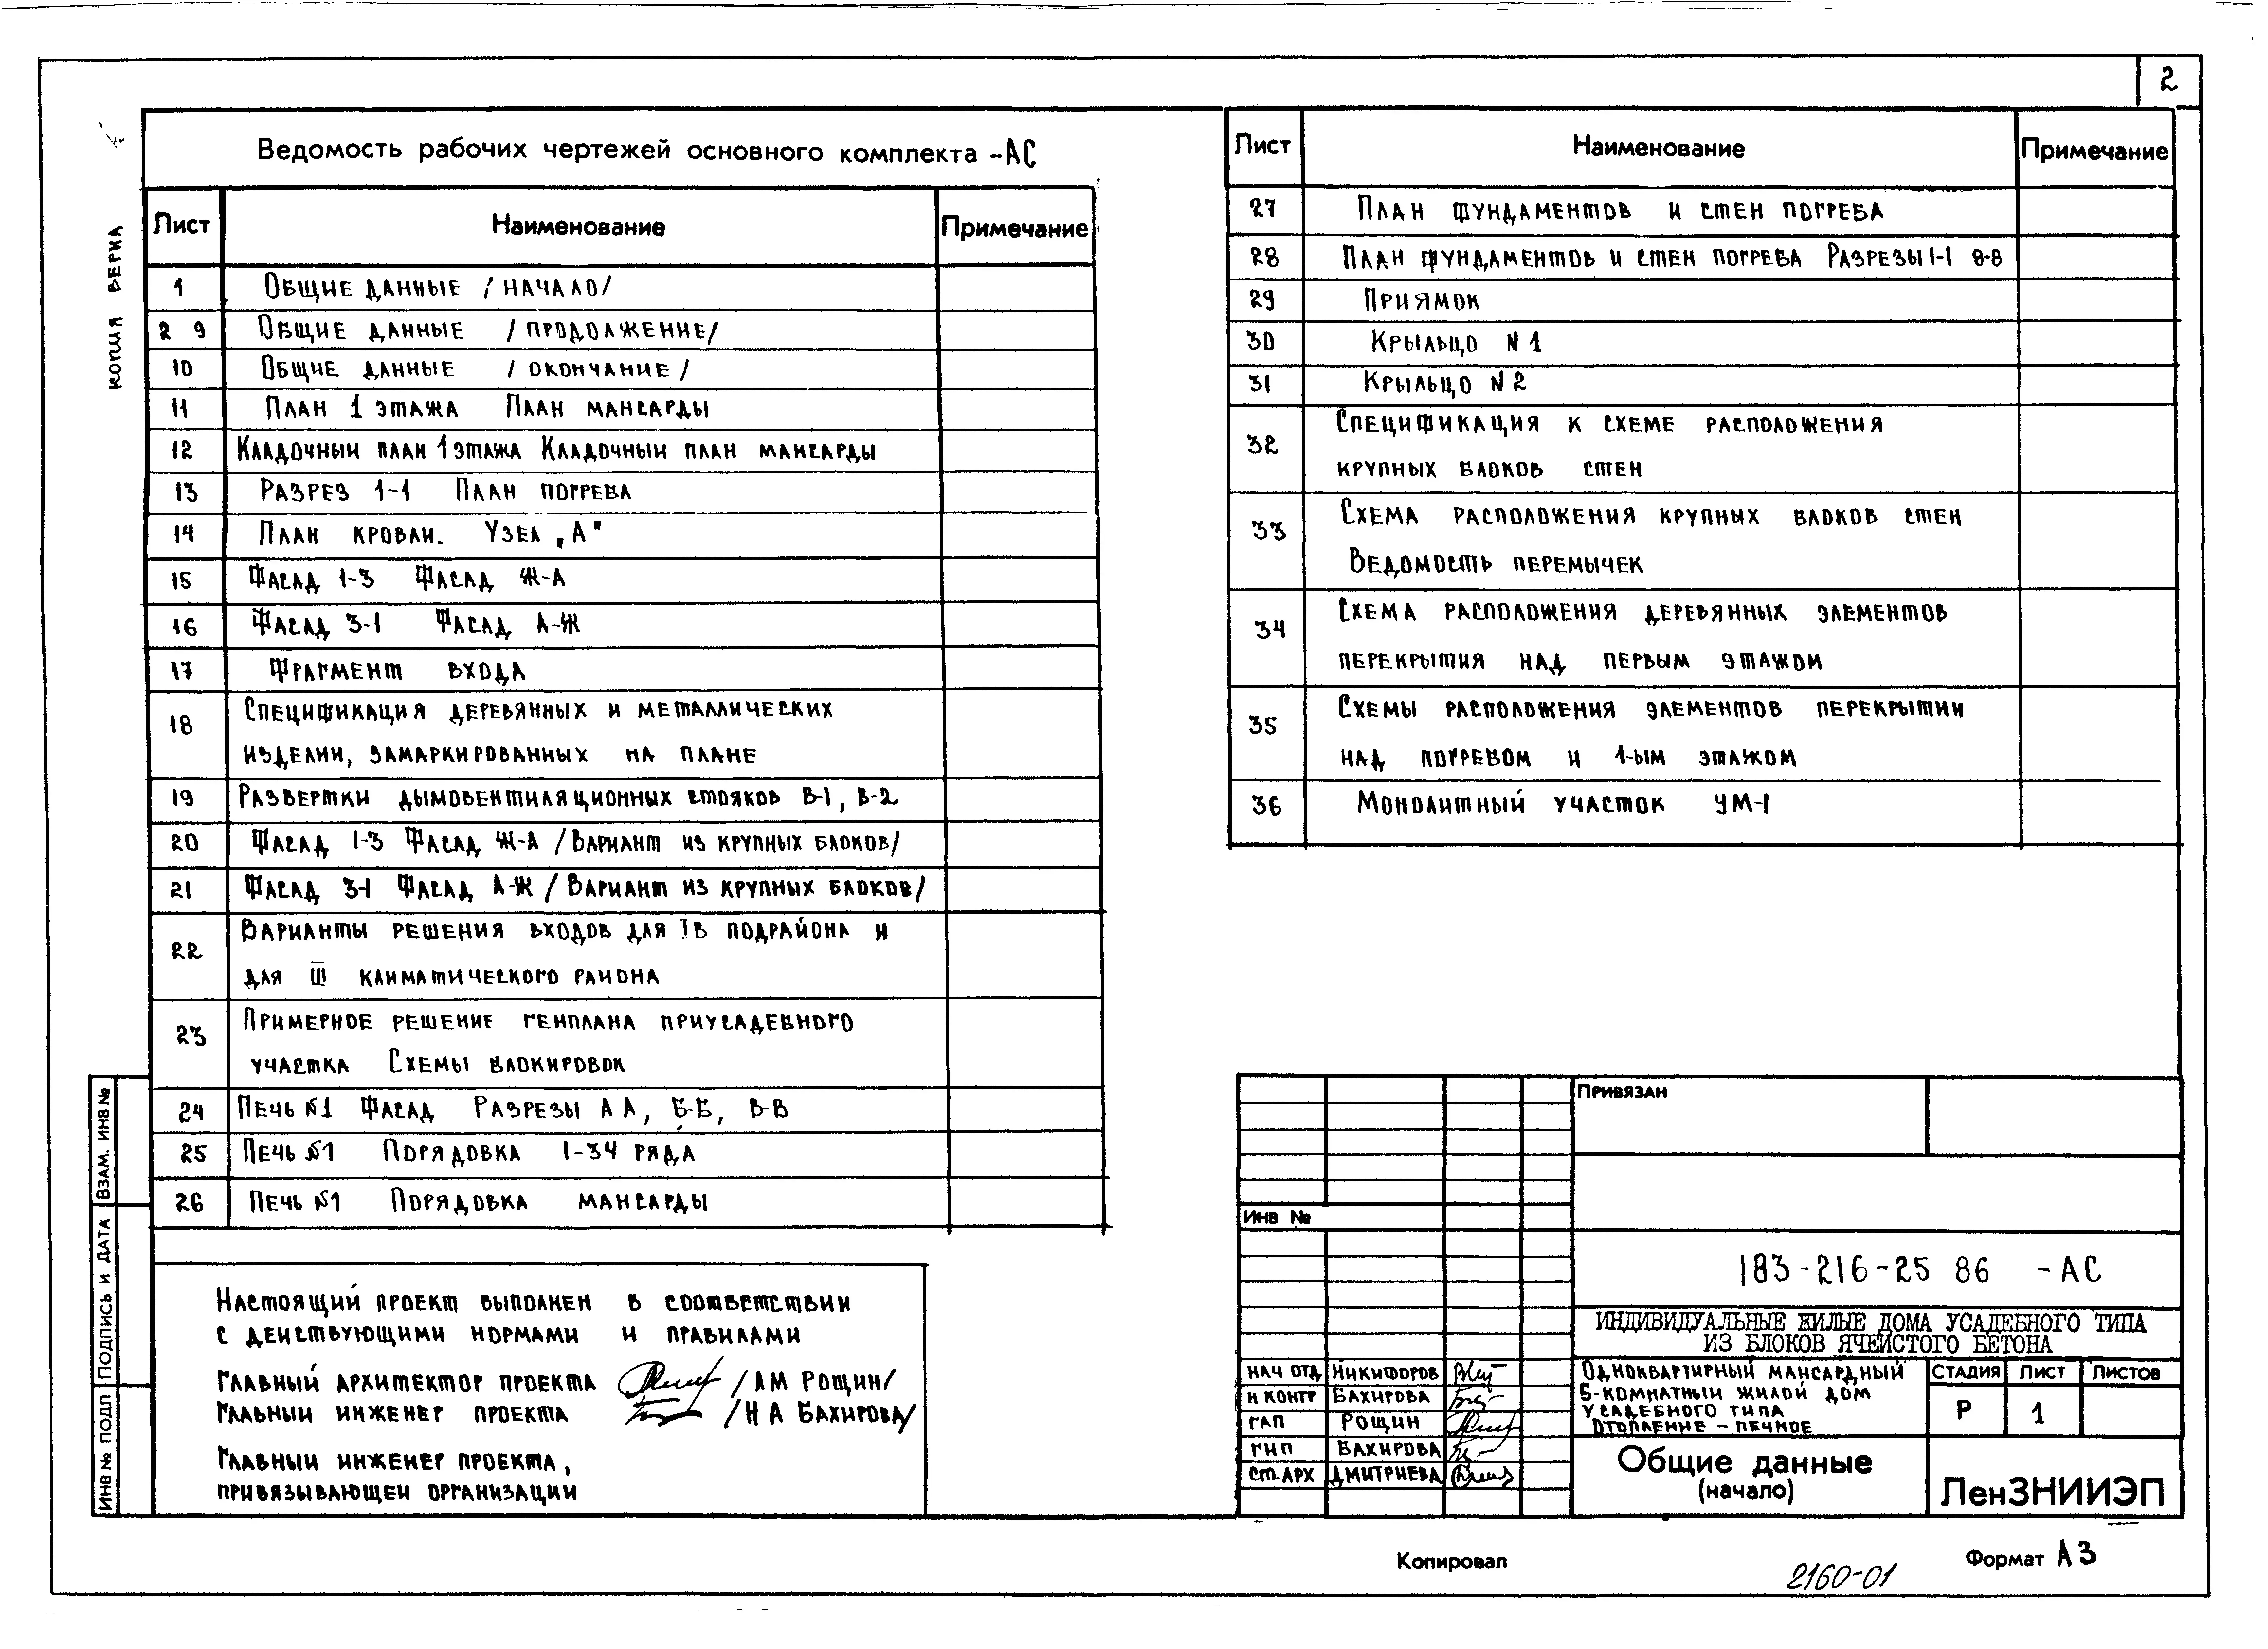 2
КОПИЯ ВЕРНА
Ведомость рабочих чертежей основного комплекта -АС
Лист Наименование Примечание
1 Общие данные /начало/
2 9 Общие данные /продолжение/
10 Общие данные /окончание/
11 План 1 этажа План мансарды
12 Кладочный план 1 этажа Кладочный план мансарды
13 Разрез 1-1 План погреба
14 План кровли. Узел „А"
15 Фасад 1-3 Фасад Ж-А
16 Фасад 3-1 Фасад А-Ж
17 Фрагмент входа
18 Спецификация деревянных и металлических
изделий, замаркированных на плане
19 Развертки дымовентиляционных стояков В-1, В-2
20 Фасад 1-3 Фасад Ж-А /Вариант из крупных блоков/
21 Фасад 3-1 Фасад А-Ж /Вариант из крупных блоков/
22 Варианты решения входов для IВ подрайона и
для III климатического района
23 Примерное решение генплана приусадебного
участка Схемы блокировок
24 Печь №1 Фасад Разрезы А А, Б-Б, В-В
25 Печь №1 Порядовка 1-34 ряда
26 Печь №1 Порядовка мансарды
Лист Наименование Примечание
27 План фундаментов и стен погреба
28 План фундаментов и стен погреба Разрезы 1-1 8-8
29 Приямок
30 Крыльцо N 1
31 Крыльцо N 2
32 Спецификация к схеме расположения
крупных блоков стен
33 Схема расположения крупных блоков стен
Ведомость перемычек
34 Схема расположения деревянных элементов
перекрытия над первым этажом
35 Схемы расположения элементов перекрытий
над погребом и 1-ым этажом
36 Монолитный участок УМ-1
Настоящий проект выполнен в соответствии
с действующими нормами и правилами
Главный архитектор проекта /А М Рощин/
Главный инженер проекта /Н А Бахирова/
Главный инженер проекта,
привязывающей организации
ИНВ № ПОДЛ ПОДПИСЬ И ДАТА ВЗАМ. ИНВ №
Привязан
ИНВ №
183-216-25 86 -АС
ИНДИВИДУАЛЬНЫЕ ЖИЛЫЕ ДОМА УСАДЕБНОГО ТИПА
ИЗ БЛОКОВ ЯЧЕИСТОГО БЕТОНА
НАЧ ОТД НИКИФОРОВ
Н КОНТР БАХИРОВА
ГАП РОЩИН
ГИП БАХИРОВА
СТ. АРХ ДМИТРИЕВА
Одноквартирный мансардный
5-комнатный жилой дом
усадебного типа
Отопление – печное
СТАДИЯ ЛИСТ ЛИСТОВ
Р 1
Общие данные
(начало)
ЛенЗНИИЭП
Копировал
Формат А3
2160-01